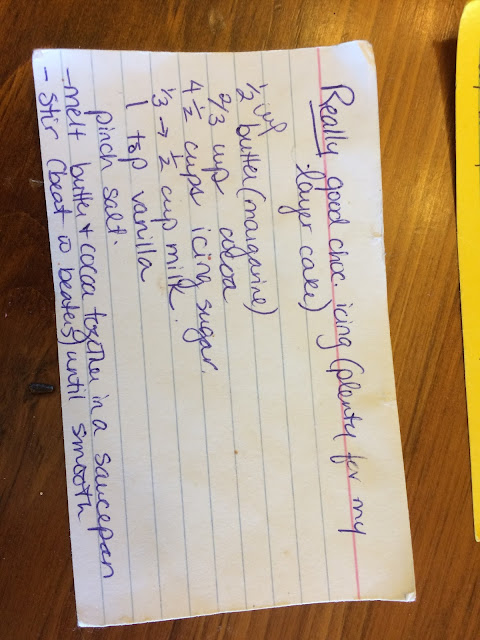 Really good choc. icing (plenty for my
layer cake)
1/2 cup butter (margarine)
2/3 cup cocoa
4 1/2 cups icing sugar.
1/3 → 1/2 cup milk.
1 tsp vanilla
pinch salt.
- melt butter & cocoa together in a saucepan
- stir (beat w beaters) until smooth